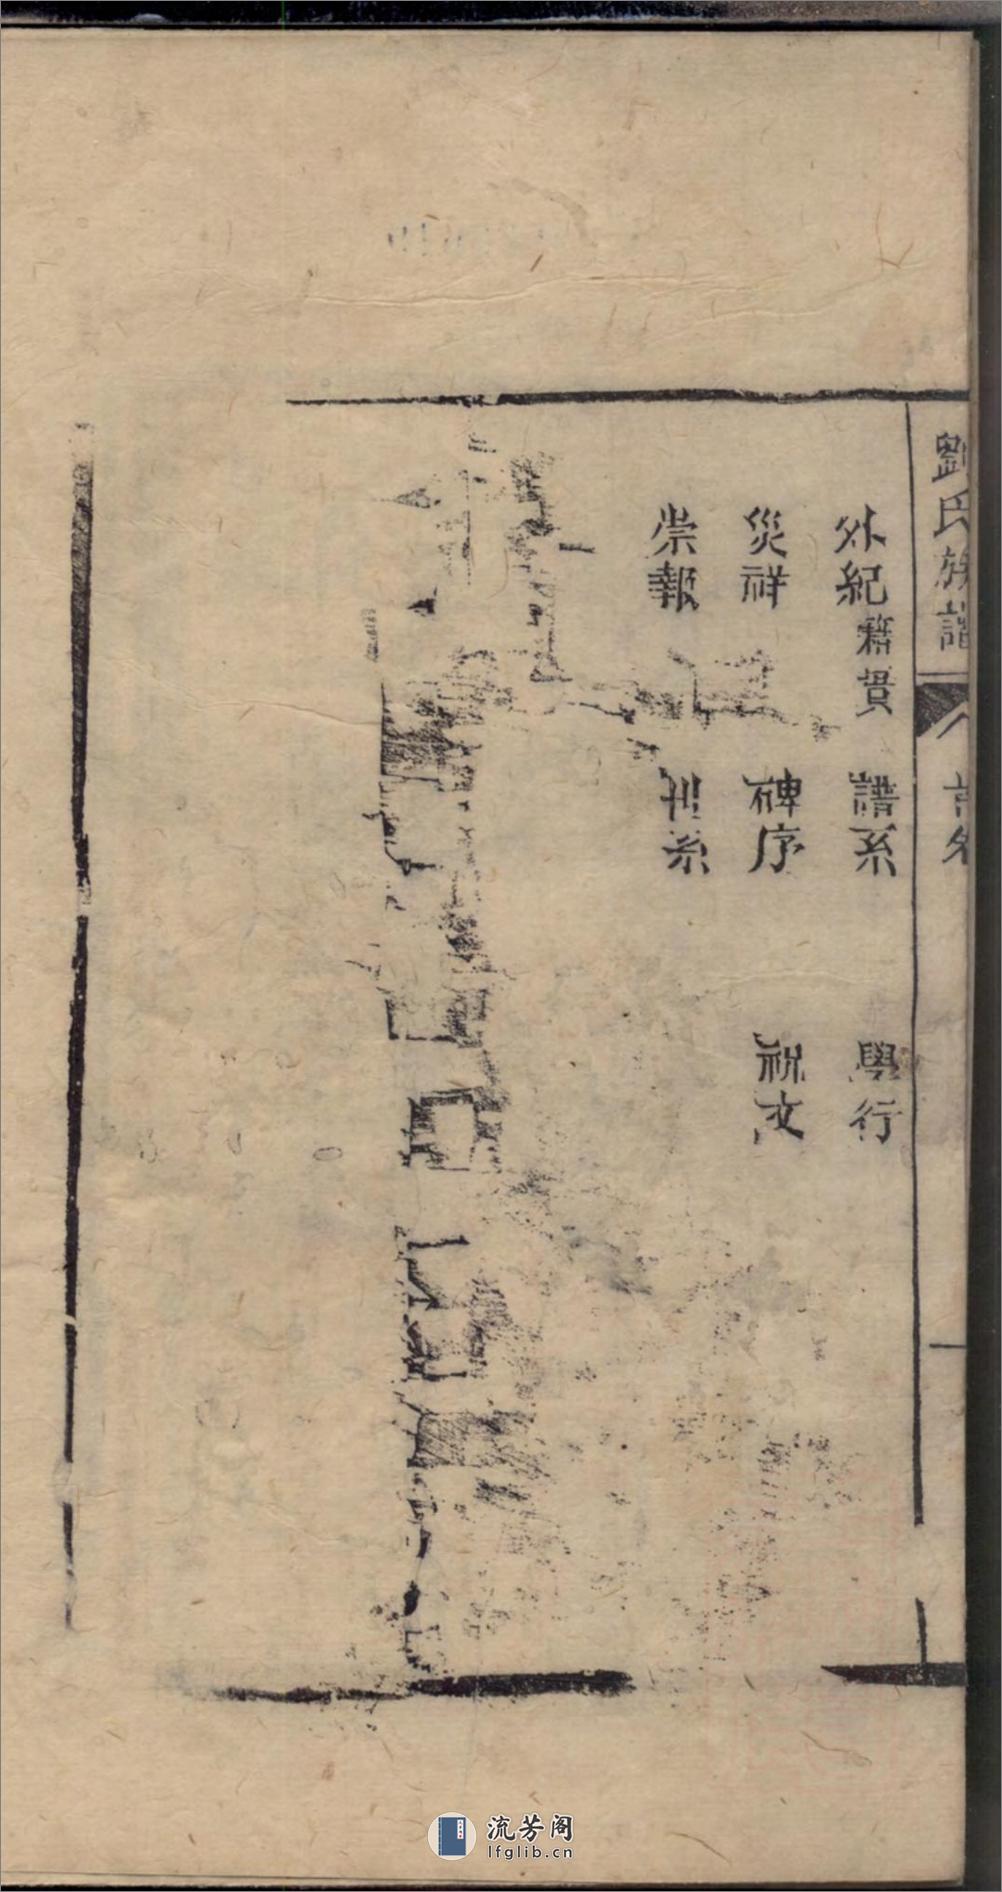 劉氏族譜
一
外紀 籍貫 譜系 學行
災祥 碑序 祝文
崇報 刊系
流芳阁
lfglib.cn